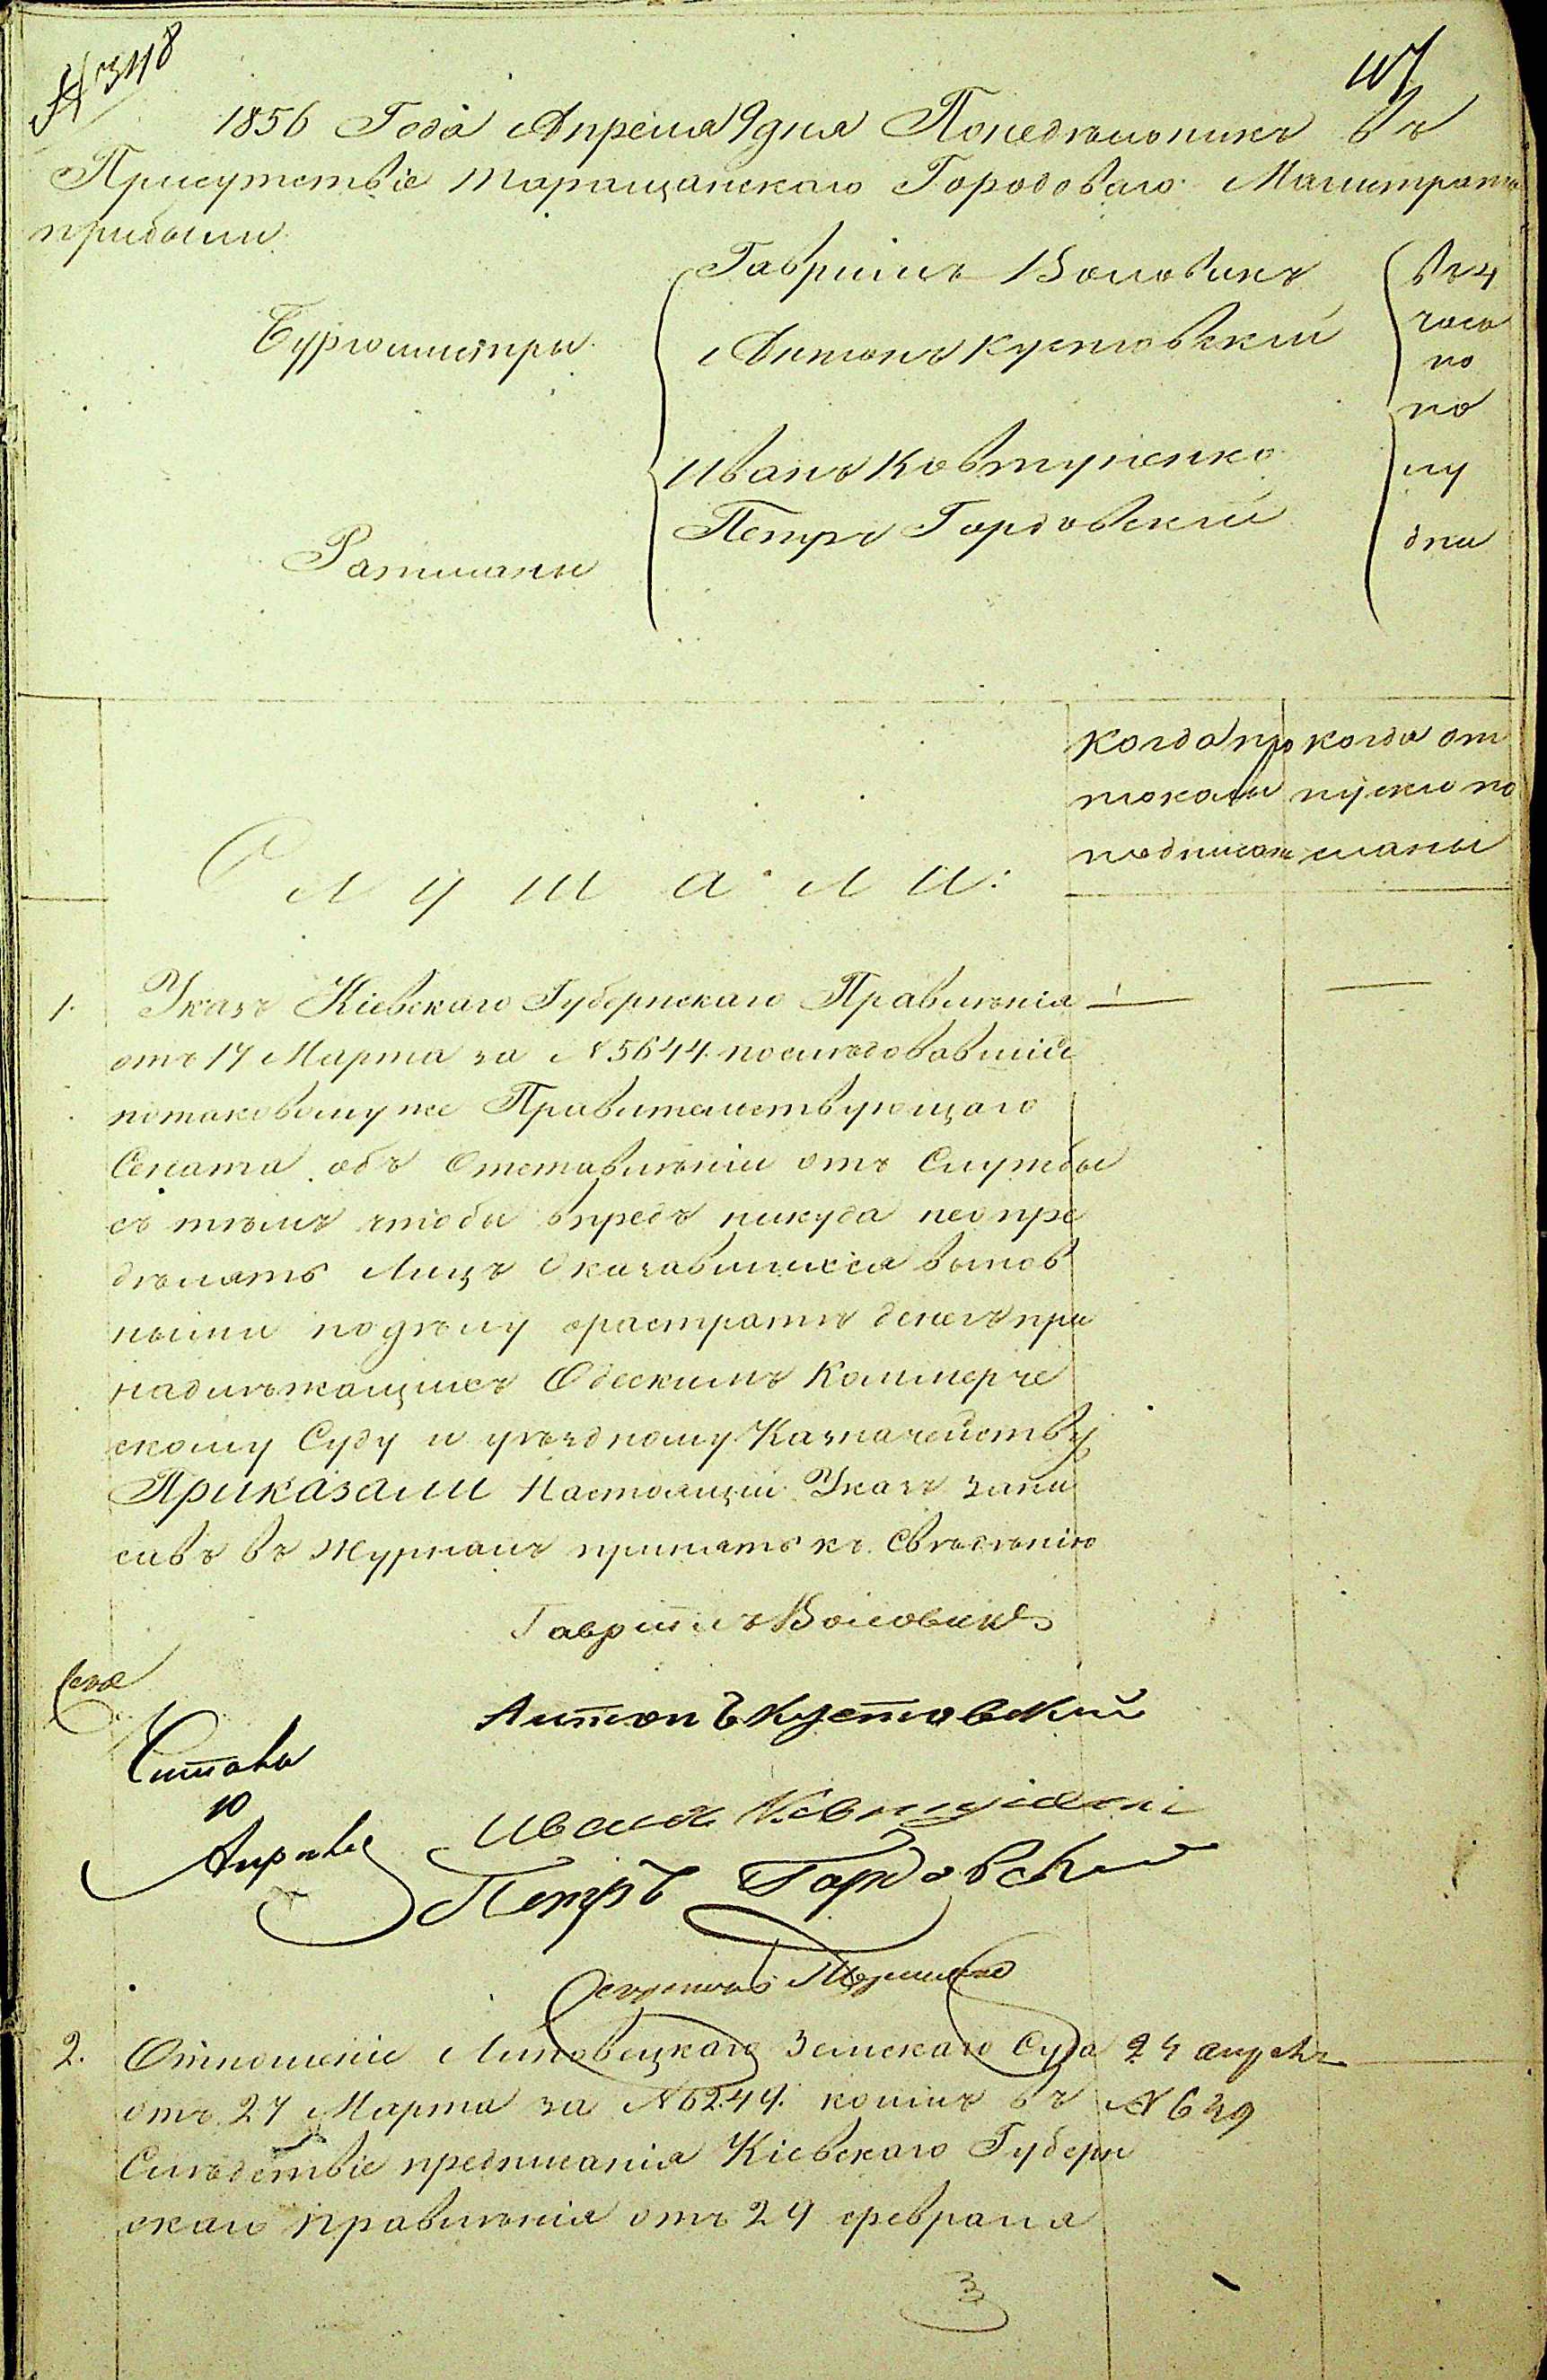 № 3118
107
1856 Года Апреля 9 дня Понедѣльникъ въ
Присутствіе Таращанскаго Городоваго Магистрата
прибыли
Бургомистры
Гавріилъ Воловикъ
Антонъ Кустовскій
Ратманы
Иванъ Ковтуненко
Петръ Гордовскій
въ 4
часа
по
по
лу
дни
Слушали:
когда про
токолы
подписаны
когда от
пуски по
сланы
1. Указъ Кіевскаго Губернскаго Правленія
отъ 17 Марта за № 5644 послѣдовавшій
потаковому же Правительствующаго
Сената объ Отставленіи отъ Службы
съ тѣмъ чтобы впредъ никуда неопре
дѣлять Лицъ Оказавшихся винов
ными подѣлу орастратѣ денегъ при
надлѣжащихъ Одескимъ Коммерче
скому Суду и уѣздному Казначейству
Приказали Настоящій Указъ запи
савъ въ Журналъ принять къ Свѣдѣнію
Гавріилъ Воловикъ
Антонъ Кустовскій
Читалъ
10
Апрѣля
Иванъ
Петръ Гордовскій
Секретарь
2. Отношеніе Липовецкаго Земскаго Суда
отъ 27 Марта за № 6244. коимъ въ
Слѣдствіе предписанія Кіевскаго Губерн
скаго правленія отъ 29 февраля
24 апрѣля
№ 639
3